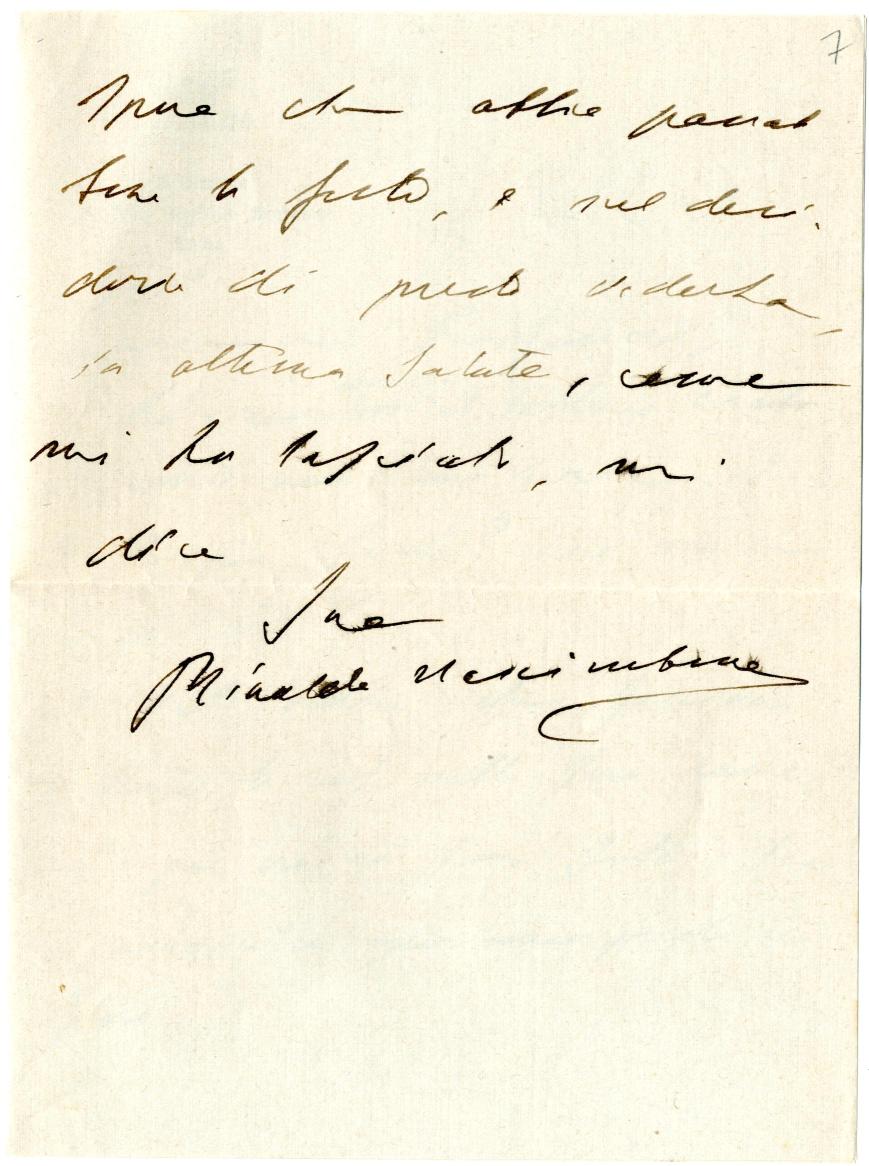 7
Spero che abbia passato
bene le feste, e nel desi-
derio di presto vederla,
in ottima salute, come
mi ha lasciato, mi
dico
Suo
Rinaldo Nascimbene